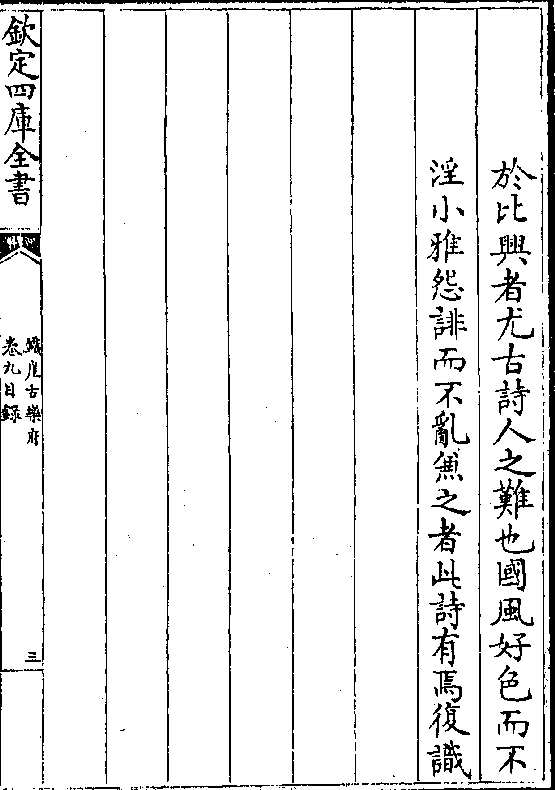 於比興者尤古詩人之難也國風好色而不
淫小雅怨誹而不亂兼之者此詩有焉復識
欽定四庫全書
鐵崖古樂府
卷九目錄
三